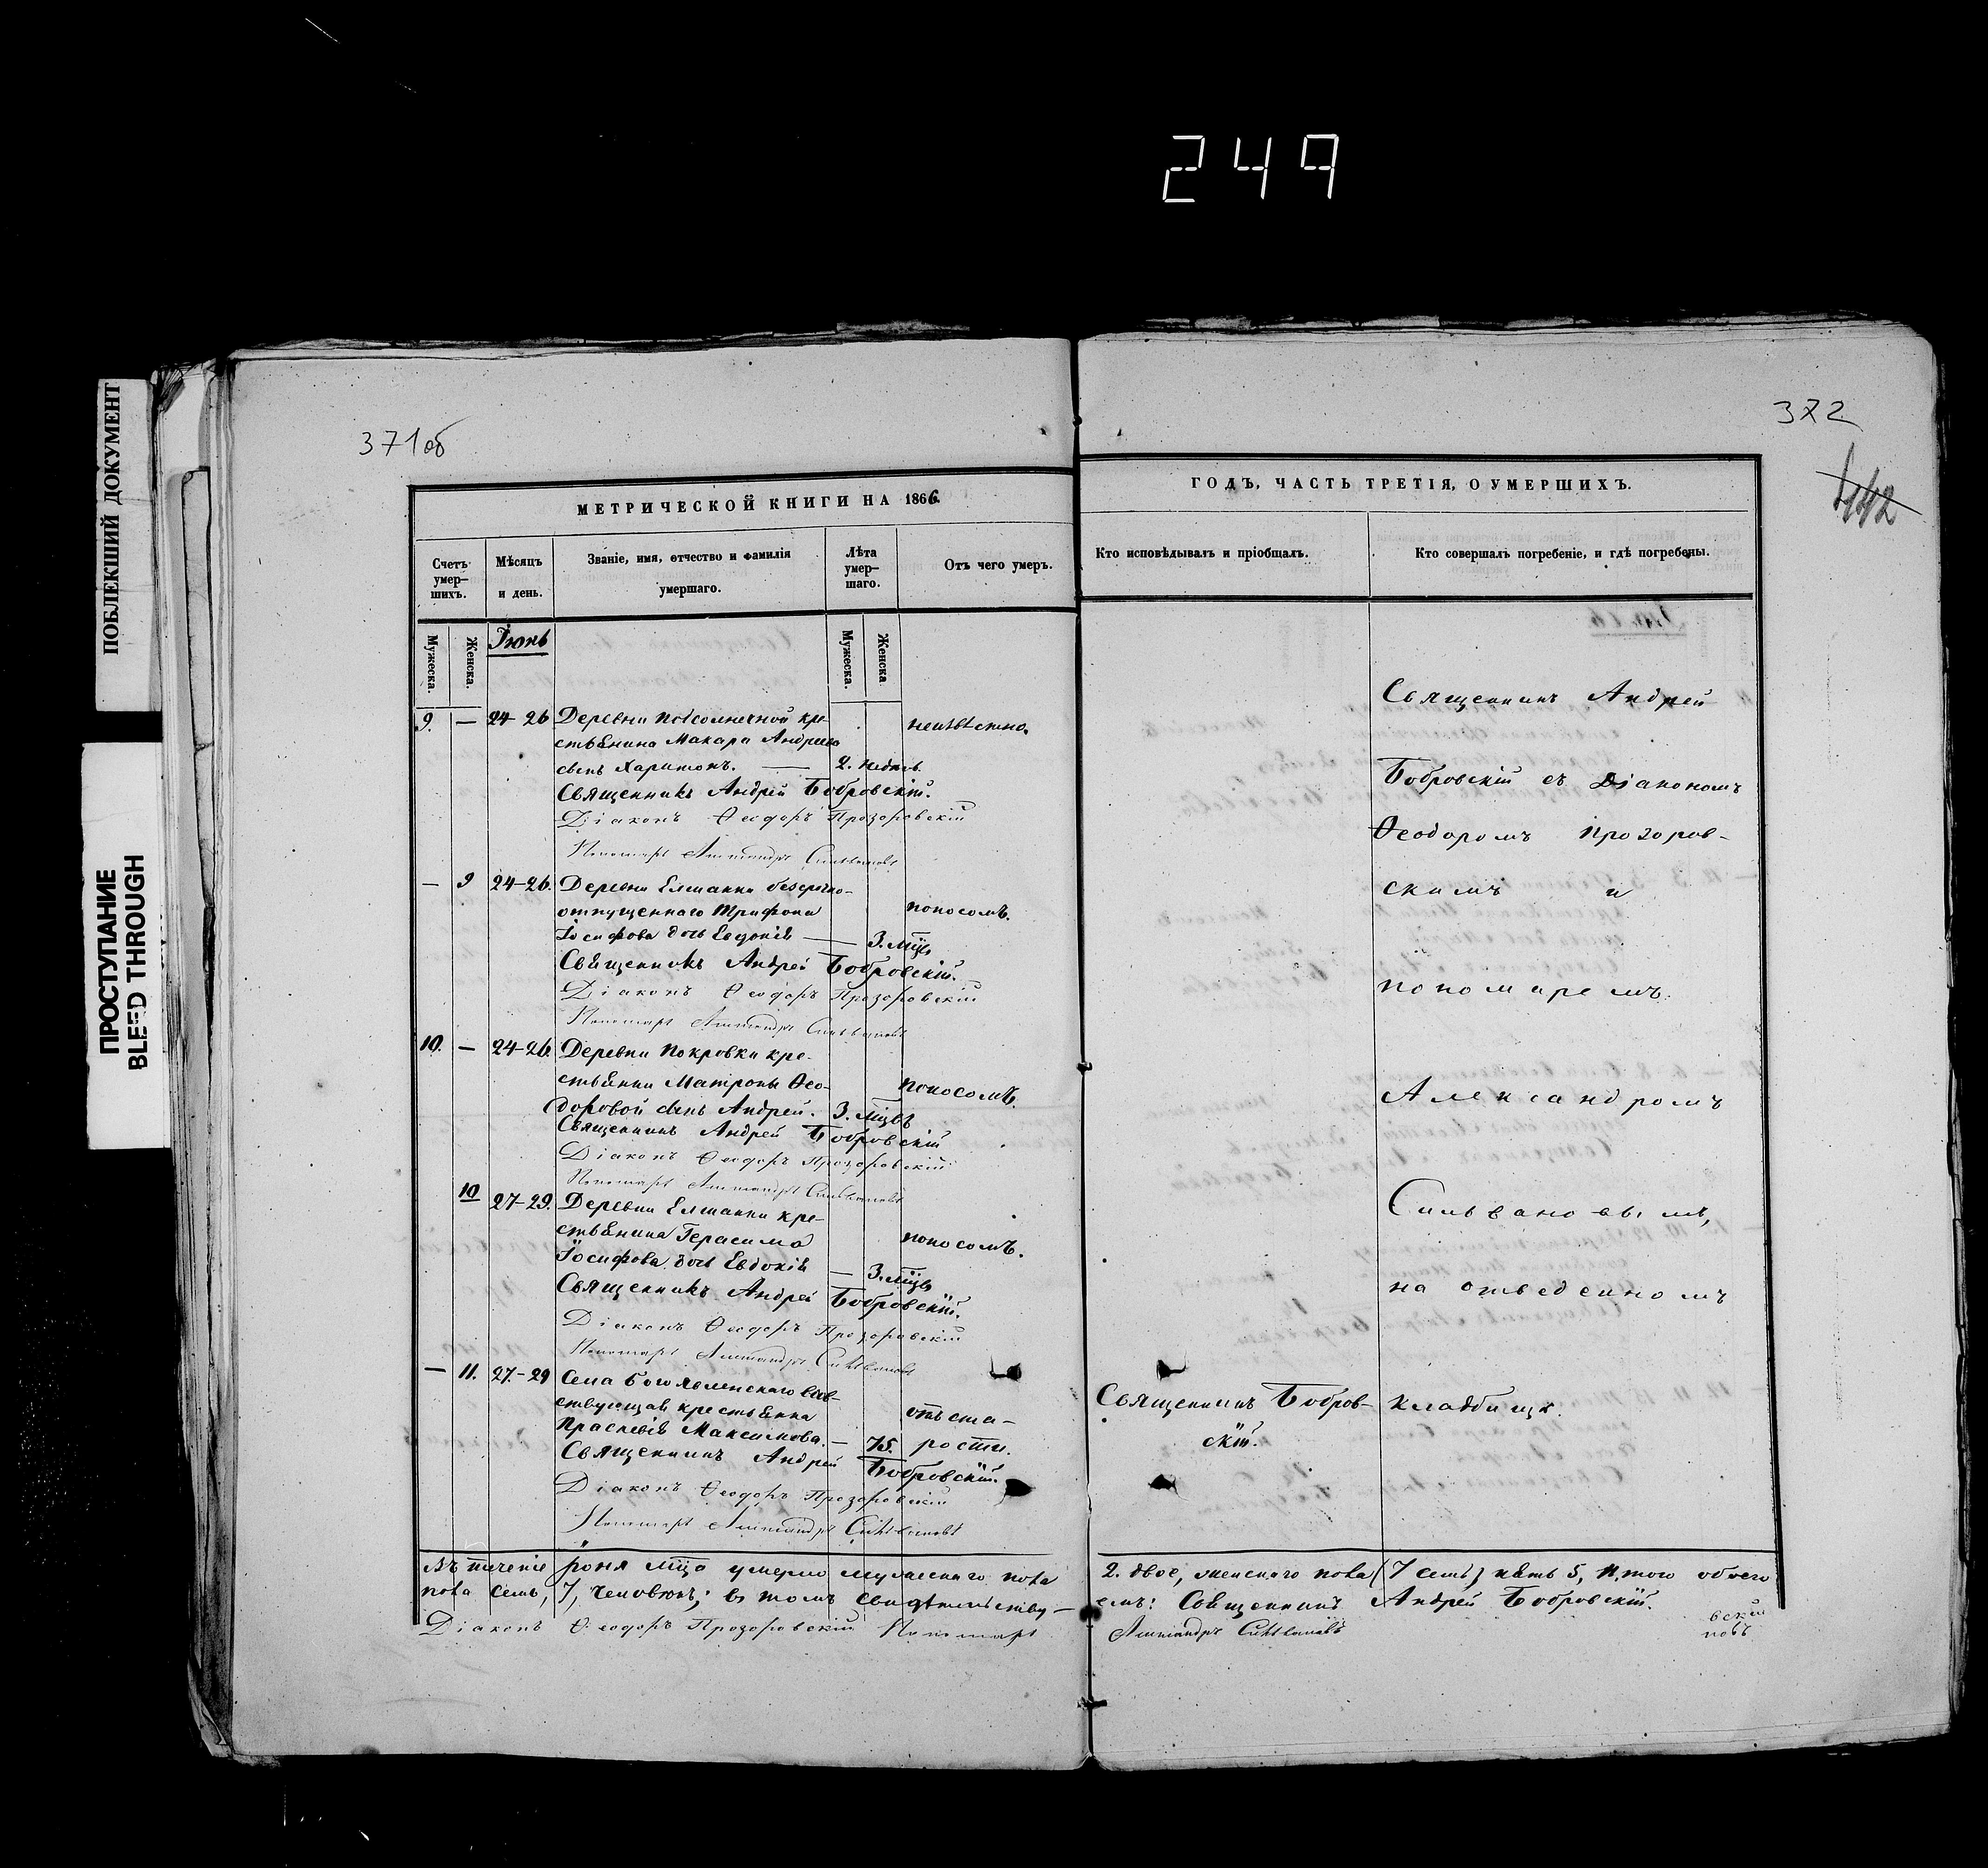 249
ПОБЛЕКШИЙ ДОКУМЕНТ
ПРОСТУПАНИЕ
BLEED THROUGH
371об
МЕТРИЧЕСКОЙ КНИГИ НА 1866
Счетъ умер-шихъ.
Мѣсяцъ и день.
Званіе, имя, отчество и фамилія умершаго.
Лѣта умер-шаго.
Отъ чего умеръ.
Мужеска.
Женска.
Іюнь
Мужеска.
Женска
9. — 24-26 Деревни Подсолнечной кре- неизвѣстно.
стьянина Макара Андреева
сынъ Харитонъ. — 2. недѣль.
Священникъ Андрей Бобровскій.
Діаконъ Ѳеодоръ Прозоровскій
Пономарь Александръ Сильвановъ
— 9 24-26. Деревни Елшанки безсрочно-
отпущеннаго Трифона поносомъ.
Іосифова дочь Евдокія — 3. мца
Священникъ Андрей Бобровскій.
Діаконъ Ѳеодоръ Прозоровскій
Пономарь Александръ Сильвановъ
10. — 24-26. Деревни Покровки кре-
стьянки Матроны Ѳео- поносомъ.
доровой сынъ Андрей. 3. мцвъ
Священникъ Андрей Бобровскій
Діаконъ Ѳеодоръ Прозоровскій
Пономарь Александръ Сильвановъ
10 27-29. Деревни Елшанки кре-
стьянина Герасима поносомъ.
Іосифова дочь Евдокія — 3. мца
Священникъ Андрей Бобровскій.
Діаконъ Ѳеодоръ Прозоровскій
Пономарь Александръ Сильвановъ
— 11. 27-29 Села Богоявленскаго вдов-
ствующая крестьянка отъ ста-
Праскевія Максимова. — 75. рости.
Священникъ Андрей Бобровскій.
Діаконъ Ѳеодоръ Прозоровскій
Пономарь Александръ Сильвановъ
Въ теченіе Іюня мца умерло мужескаго пола
пола семь, 7, человѣкъ; въ томъ свидѣтельству-
Діаконъ Ѳеодоръ Прозоровскій Пономарь
372
442
ГОДЪ, ЧАСТЬ ТРЕТІЯ, О УМЕРШИХЪ.
Кто исповѣдывалъ и пріобщалъ.
Кто совершалъ погребеніе, и гдѣ погребены.
Священникъ Андрей
Бобровскій съ Діакономъ
Ѳеодоромъ Прозоров-
скимъ и
пономаремъ
Александромъ
Сильвановымъ,
на отведенномъ
Священникъ Бобров- кладбищѣ.
скій.
2. двое, женскаго пола (7 семь) пять 5, Итого обоего
емъ: Священникъ Андрей Бобровскій.
Александръ Сильвановъ
вскій
новъ